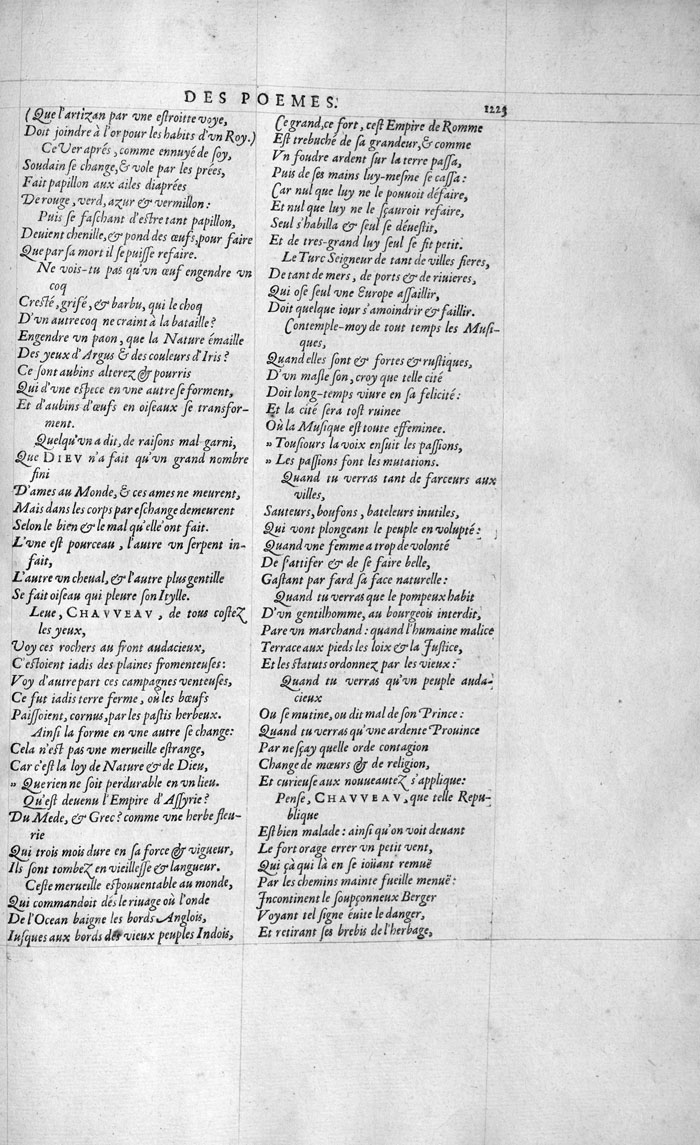 DES POEMES.
1225
(Que l'artizan par vne estroitte voye,
Doit joindre à l'or pour les habits d'vn Roy.)
Ce Ver aprés, comme ennuyé de soy,
Soudain se change, & vole par les prées,
Fait papillon aux ailes diaprées
De rouge, verd, azur & vermillon:
Puis se faschant d'estre tant papillon,
Deuient chenille, & pond des œufs, pour faire
Que par sa mort il se puisse refaire.
Ne vois-tu pas qu'vn œuf engendre vn
coq
Cresté, grifé, & barbu, qui le choq
D'vn autre coq ne craint à la bataille?
Engendre vn paon, que la Nature émaille
Des yeux d'Argus & des couleurs d'Iris?
Ce sont aubins alterez & pourris
Qui d'vne espece en vne autre se forment,
Et d'aubins d'œufs en oiseaux se transfor-
ment.
Quelqu'vn a dit, de raisons mal garni,
Que DIEV n'a fait qu'vn grand nombre
fini
D'ames au Monde, & ces ames ne meurent,
Mais dans les corps par eschange demeurent
Selon le bien & le mal qu'elle' ont fait.
L'vne est pourceau, l'autre vn serpent in-
fait,
L'autre vn cheual, & l'autre plus gentille
Se fait oiseau qui pleure son Itylle.
Leue, CHAVVEAV, de tous costez
les yeux,
Voy ces rochers au front audacieux,
C'estoient iadis des plaines fromenteuses:
Voy d'autre part ces campagnes venteuses,
Ce fut iadis terre ferme, où les bœufs
Paissoient, cornus, par les pastis herbeux.
Ainsi la forme en vne autre se change:
Cela n'est pas vne merueille estrange,
Car c'est la loy de Nature & de Dieu,
» Que rien ne soit perdurable en vn lieu.
Qu'est deuenu l'Empire d'Assyrie?
Du Mede, & Grec? comme vne herbe fleu-
rie
Qui trois mois dure en sa force & vigueur,
Ils sont tombez en vieillesse & langueur.
Ceste merueille espouuentable au monde,
Qui commandoit dés le riuage où l'onde
De l'Ocean baigne les bords Anglois,
Iusques aux bords des vieux peuples Indois,
Ce grand, ce fort, cest Empire de Romme
Est trebuché de sa grandeur, & comme
Vn foudre ardent sur la terre passa,
Puis de ses mains luy-mesme se cassa:
Car nul que luy ne le pouuoit défaire,
Et nul que luy ne le sçauroit refaire,
Seul s'habilla & seul se déuestit,
Et de tres-grand luy seul se fit petit.
Le Turc Seigneur de tant de villes fieres,
De tant de mers, de ports & de riuieres,
Qui ose seul vne Europe assaillir,
Doit quelque iour s'amoindrir & faillir.
Contemple-moy de tout temps les Musi-
ques,
Quand elles sont & fortes & rustiques,
D'vn masle son, croy que telle cité
Doit long-temps viure en sa felicité:
Et la cité sera tost ruinee
Où la Musique est toute effeminee.
» Tousiours la voix ensuit les passions,
» Les passions font les mutations.
Quand tu verras tant de farceurs aux
villes,
Sauteurs, boufons, bateleurs inutiles,
Qui vont plongeant le peuple en volupté:
Quand vne femme a trop de volonté
De s'attifer & de se faire belle,
Gastant par fard sa face naturelle:
Quand tu verras que le pompeux habit
D'vn gentilhomme, au bourgeois interdit,
Pare vn marchand: quand l'humaine malice
Terrace aux pieds les loix & la Justice,
Et les statuts ordonnez par les vieux:
Quand tu verras qu'vn peuple auda-
cieux
Ou se mutine, ou dit mal de son Prince:
Quand tu verras qu'vne ardente Prouince
Par ne sçay quelle orde contagion
Change de mœurs & de religion,
Et curieuse aux nouueautez s'applique:
Pense, CHAVVEAV, que telle Repu-
blique
Est bien malade: ainsi qu'on voit deuant
Le fort orage errer vn petit vent,
Qui çà qui là en se ioüant remuë
Par les chemins mainte fueille menuë:
Incontinent le soupçonneux Berger
Voyant tel signe éuite le danger,
Et retirant ses brebis de l'herbage,